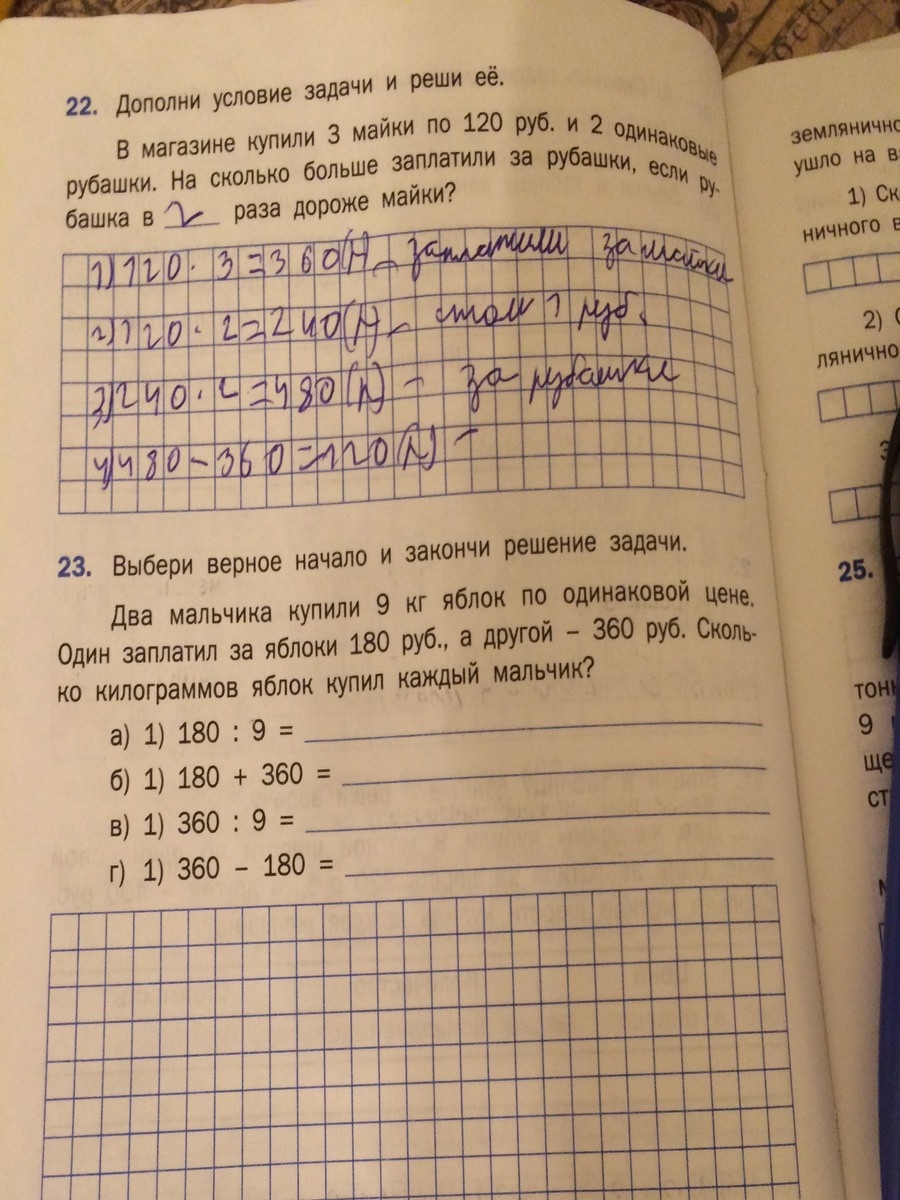 22. Дополни условие задачи и реши её.
В магазине купили 3 майки по 120 руб. и 2 одинаковые
рубашки. На сколько больше заплатили за рубашки, если ру-
башка в 2 раза дороже майки?
1) 120 · 3 = 360 (р) - заплатили за майки
2) 120 · 2 = 240 (р) - стоит 1 руб.
3) 240 · 2 = 480 (р) - за рубашки
4) 480 - 360 = 120 (р) -
23. Выбери верное начало и закончи решение задачи.
Два мальчика купили 9 кг яблок по одинаковой цене.
Один заплатил за яблоки 180 руб., а другой – 360 руб. Сколь-
ко килограммов яблок купил каждый мальчик?
а) 1) 180 : 9 =
б) 1) 180 + 360 =
в) 1) 360 : 9 =
г) 1) 360 – 180 =
землянично
ушло на в
1) Ск
ничного в
2)
лянично
25.
тонн
9
ще
ст